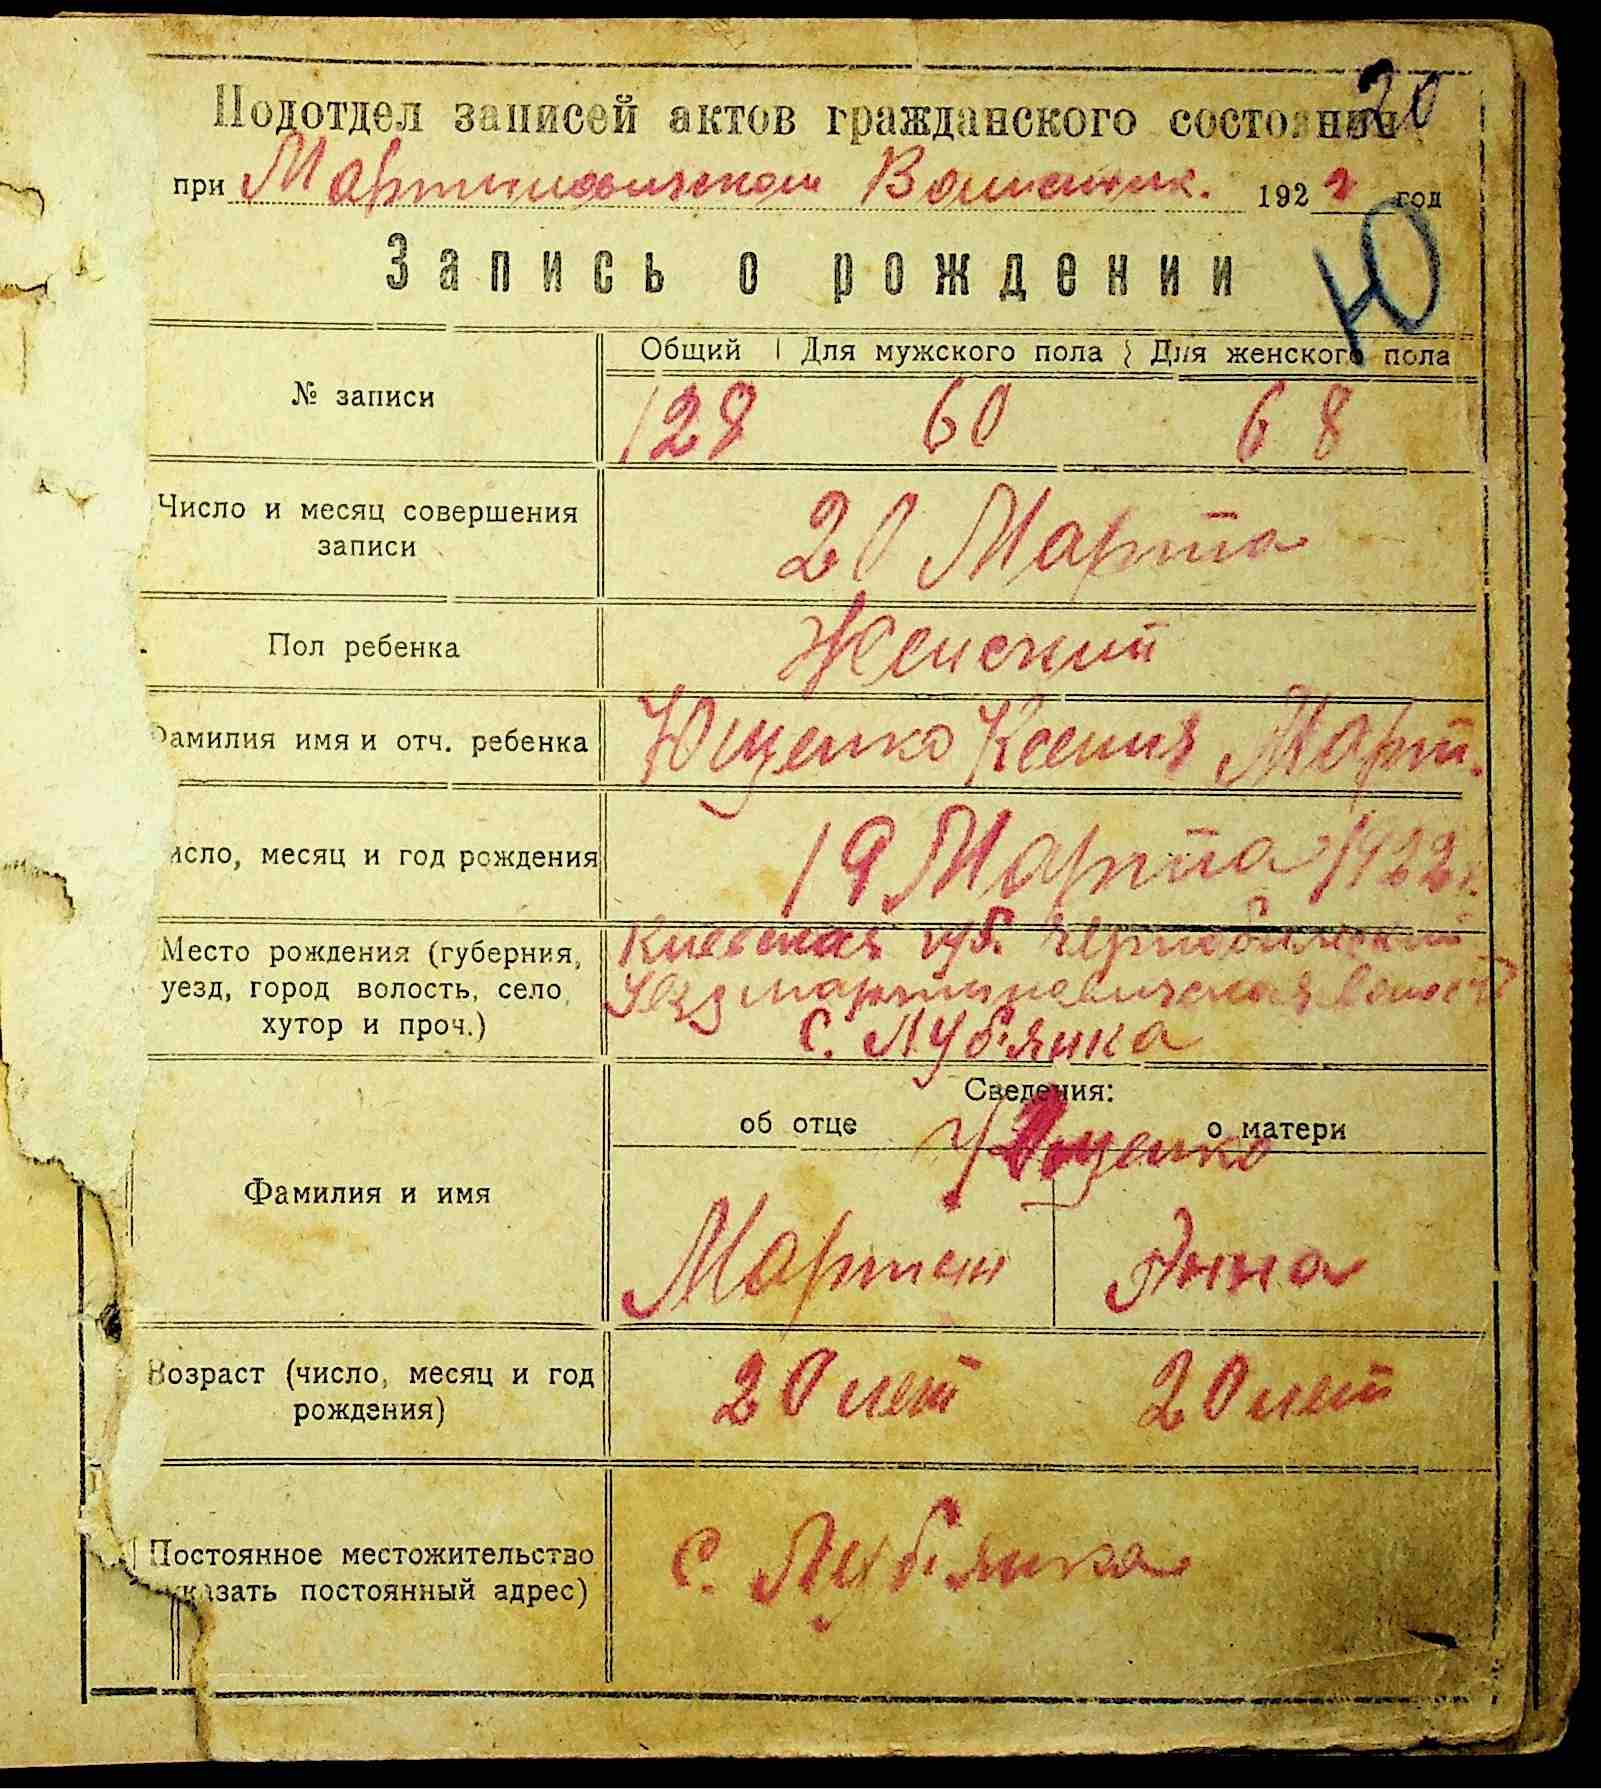 20
Подотдел записей актов гражданского состояния
при Мартиновическом Волисполк. 1922 год
Ю
Запись о рождении
Общий Для мужского пола Для женского пола
№ записи 128 60 68
Число и месяц совершения
записи
20 Марта
Пол ребенка Женский
Фамилия имя и отч. ребенка Ющенко Ксения Март.
исло, месяц и год рождения 19 Марта 1922 г.
Место рождения (губерния, Киевская губ. Чернобильский
уезд, город волость, село, Уезд мартиновическая волость
хутор и проч.) с. Лубянка
Сведения:
об отце о матери
Ющенко
Фамилия и имя
Мартин Анна
Возраст (число, месяц и год
рождения)
20 лет 20 лет
Постоянное местожительство
казать постоянный адрес)
с. Лубянка